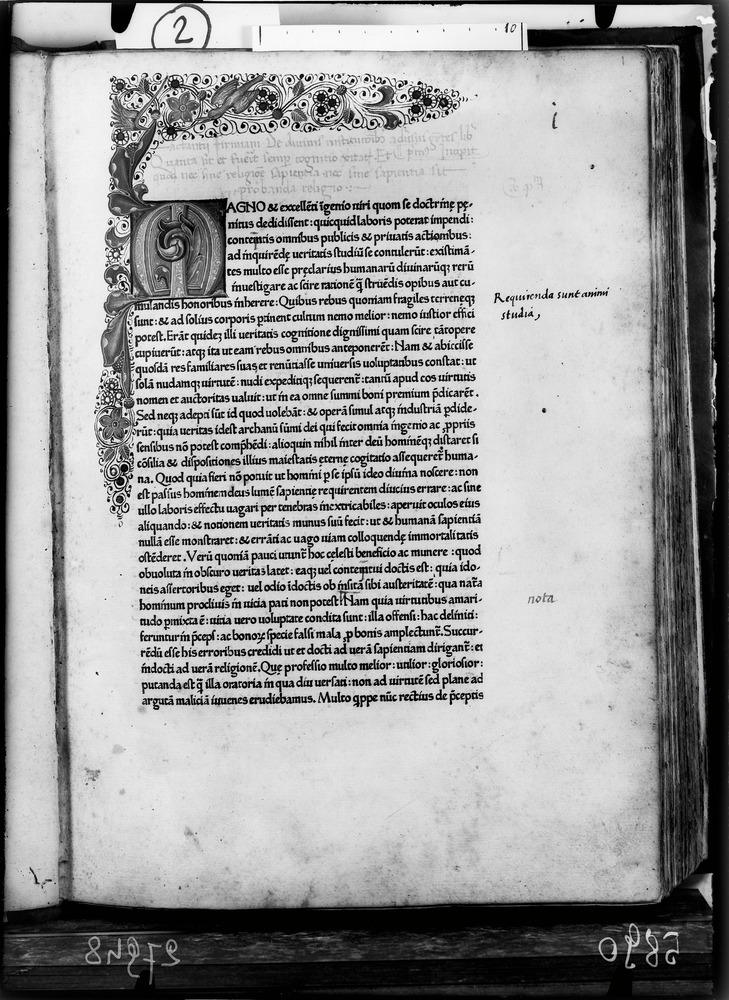 2
10
i
Lactantii firmiani De divinis institutionibus adversus gentes lib
Quanta sit et fuerit semper cognitio veritatis Et Capitulum primum Incipit
quod nec sine religione sapientia nec sine sapientia sit
probanda religio
MAGNO & excellēti īgenio uiri quom se doctrinę pę-
nitus dedidissent: quicquid laboris poterat impendi:
contemptis omnibus publicis & priuatis actionibus:
ad inquirēdę ueritatis studiū se contulerūt: existimā-
tes multo esse pręclarius humanarū diuinarūq; rerū
inuestigare ac scire rationē q̄ struēdis opibus aut cu-
mulandis honoribus inherere: Quibus rebus quoniam fragiles terreneq;
sunt: & ad solius corporis ꝑtinent cultum nemo melior: nemo iustior effici
potest. Erāt quidez illi ueritatis cognitione dignissimi quam scire tātopere
cupiuerūt: atq; ita ut eam rebus omnibus anteponerēt: Nam & abiecisse
quosdā res familiares suas et renūtiasse uniuersis uoluptatibus constat: ut
solā nudamq; uirtutē: nudi expeditiq; sequerent᷑: tantū apud eos uirtutis
nomen et auctoritas ualuit: ut in ea omne summi boni premium p̄dicarēt.
Sed neq; adepti sūt id quod uolebāt: & operā simul atq; industriā ꝑdide-
rūt: quia ueritas idest archanū sūmi dei qui fecit omnia ingenio ac ꝓpriis
sensibus nō potest comp̄hēdi: alioquin nihil inter deū hominēq; distaret si
cōsilia & dispositiones illius maiestatis eternę cogitatio assequeret᷑ huma-
na. Quod quia fieri nō potuit ut homini ꝑ se ip̄sū ideo diuina noscere: non
est passus hominem deus lumē sapientię requirentem diucius errare: ac sine
ullo laboris effectu uagari per tenebras inextricabiles: aperuit oculos eius
aliquando: & notionem ueritatis munus suū fecit: ut & humanā sapientiā
nullā esse monstraret: & errāti ac uago uiam colloquendę immortalitatis
ostēderet. Verū quoniā pauci utunt᷑ hoc celesti beneficio ac munere: quod
obuoluta in obscuro ueritas latet: eaq; uel contemptui doctis est: quia ido-
neis assertoribus eget: uel odio īdoctis ob īnsitā sibi austeritatē: qua nat᷑a
hominum procliuis in uicia pati non potest: Nam quia uirtutibus amari-
tudo ꝑmixta ē: uitia uero uoluptate condita sunt: illa offensi: hac deliniti:
feruntur in p̄ceps: ac bonoꝝ specie falsi mala ꝓ bonis amplectunt᷑. Succur-
rēdū esse his erroribus credidi ut et docti ad uerā sapientiam dirigant᷑: et
indocti ad uerā religionē. Quę professio multo melior: utilior: gloriosior:
putanda est q̄ illa oratoria in qua diu uersati: non ad uirtutē sed plane ad
argutā maliciā iuuenes erudiebamus. Multo q̄ppe nūc rectius de p̄ceptis
Requirenda sunt animi
studia,
nota
27948
5890